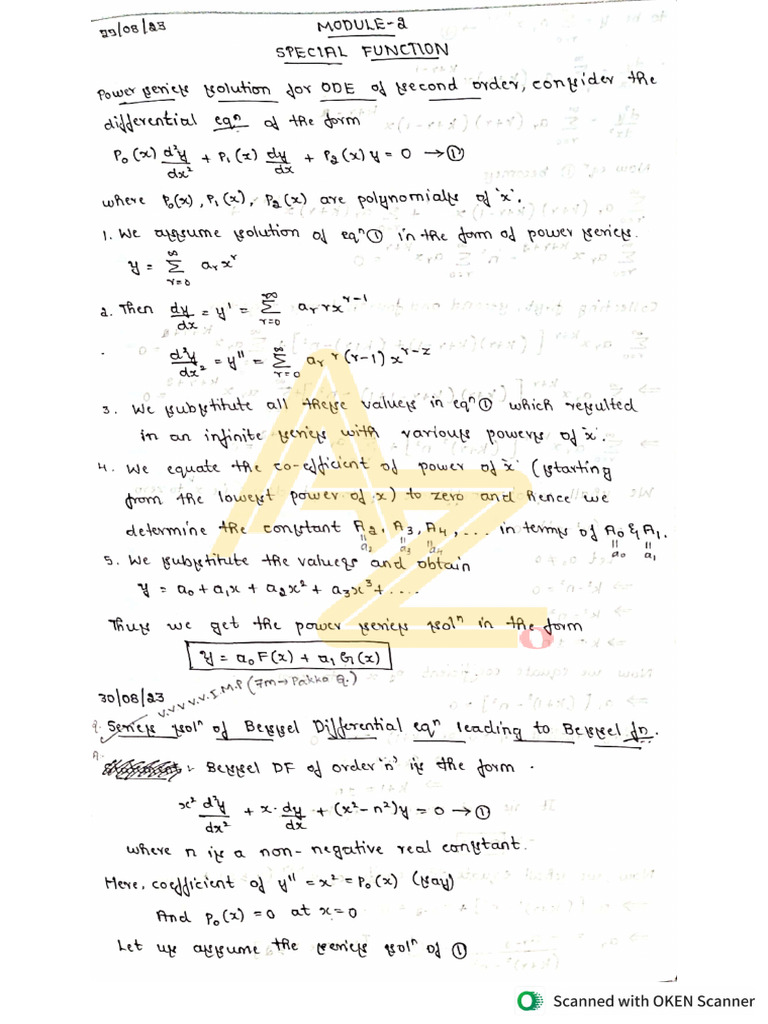 29/08/23
MODULE-2
SPECIAL FUNCTION
Power series solution for ODE of second order, consider the
differential eqn of the form
P₀(x) d²y/dx² + P₁(x) dy/dx + P₂(x) y = 0 → ①
where P₀(x), P₁(x), P₂(x) are polynomials of 'x'.
1. We assume solution of eqⁿ ① in the form of power series.
y = ∞ Σ r=0 aᵣxʳ
2. Then dy/dx = y' = ∞ Σ r=0 aᵣ r xʳ⁻¹
d²y/dx² = y'' = ∞ Σ r=0 aᵣ r (r-1) xʳ⁻²
3. We substitute all these values in eqⁿ ① which resulted
in an infinite series with various powers of 'x'.
4. We equate the co-efficient of power of 'x' (starting
from the lowest power of x) to zero and hence we
determine the constant A₂, A₃, A₄, .... in terms of A₀ & A₁.
|| a₂ || a₃ || a₄ || a₀ || a₁
5. We substitute the values and obtain
y = a₀ + a₁x + a₂x² + a₃x³ + ....
Thus we get the power series solⁿ in the form
y = a₀ F(x) + a₁ G(x)
30/08/23
V.V.V.V.V.I.M.P (7m → Pakka Q.)
Q. Series solⁿ of Bessel Differential eqⁿ leading to Bessel fn.
A.
:- Bessel DF of order 'n' is the form .
x² d²y/dx² + x. dy/dx + (x²-n²)y = 0 → ①
where n is a non-negative real constant.
Here, coefficient of y'' = x² = P₀(x) (say)
And P₀(x) = 0 at x=0
Let us assume the series solⁿ of ①
AZ
Scanned with OKEN Scanner